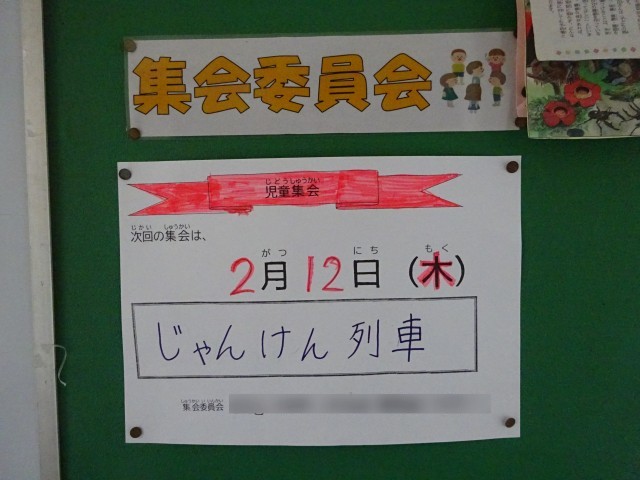 集会委員会
じどうしゅうかい
児童集会
じかい しゅうかい
次回の集会は、
がつ にち もく
2月12日(木)
じゃんけん列車
しゅうかいいいんかい
集会委員会